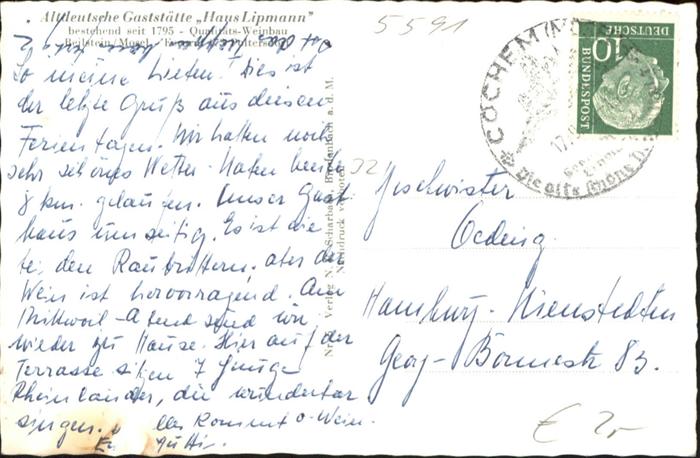 Altdeutsche Gaststätte „Haus Lipmann"
bestehend seit 1795 - Qualitäts-Weinbau
Beilstein/Mosel
So meine Lieben! Dies ist
der letzte Gruß aus diesen
Ferientagen. Wir hatten noch
sehr schönes Wetter. Haben heute
9 km. gelaufen. Unser Gast
haus urig. Es ist wie
bei den Raubrittern, aber der
Wein ist hervorragend. Am
Mittwoch-Abend sind wir
wieder zu Hause. Hier auf der
Terrasse sitzen 7 junge
Rheinländer, die wunderbar
singen.
5591
32
COCHEM (MOSEL)
17.
10
DEUTSCHE
BUNDESPOST
Geschwister
Oeding
Hamburg-Nienstedten
Georg-Bonnestr 83.
€ 2,-